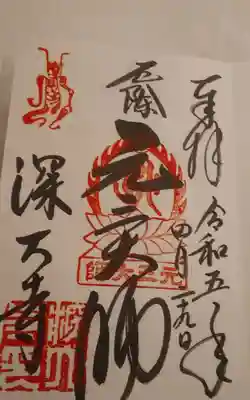 奉拝
令和五年
四月二十九日
元三大師
深大寺